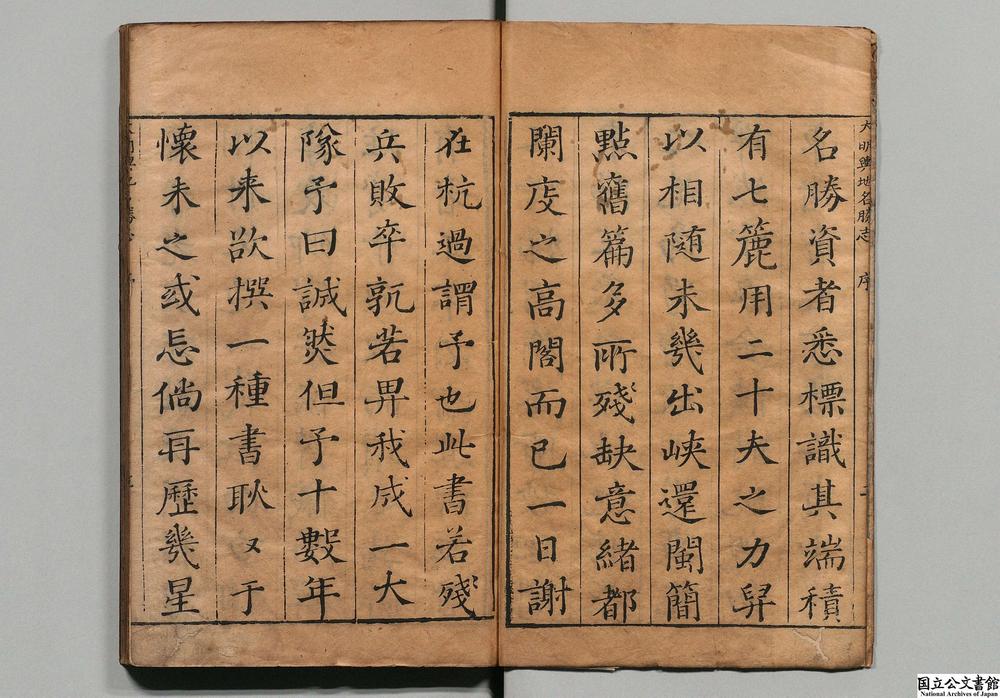 大明輿地名勝志 序
名勝資者悉標識其端積
有七簏用二十夫之力舁
以相随未幾出峽還閩簡
點舊篇多所殘缺意緒都
闌庋之高閣而已一日謝
在杭過謂予也此書若殘
兵敗卒孰若畀我成一大
隊予曰誠然但予十數年
以来欲撰一種書耿々于
懷未之或忘倘再歷幾星
国立公文書館
National Archives of Japan